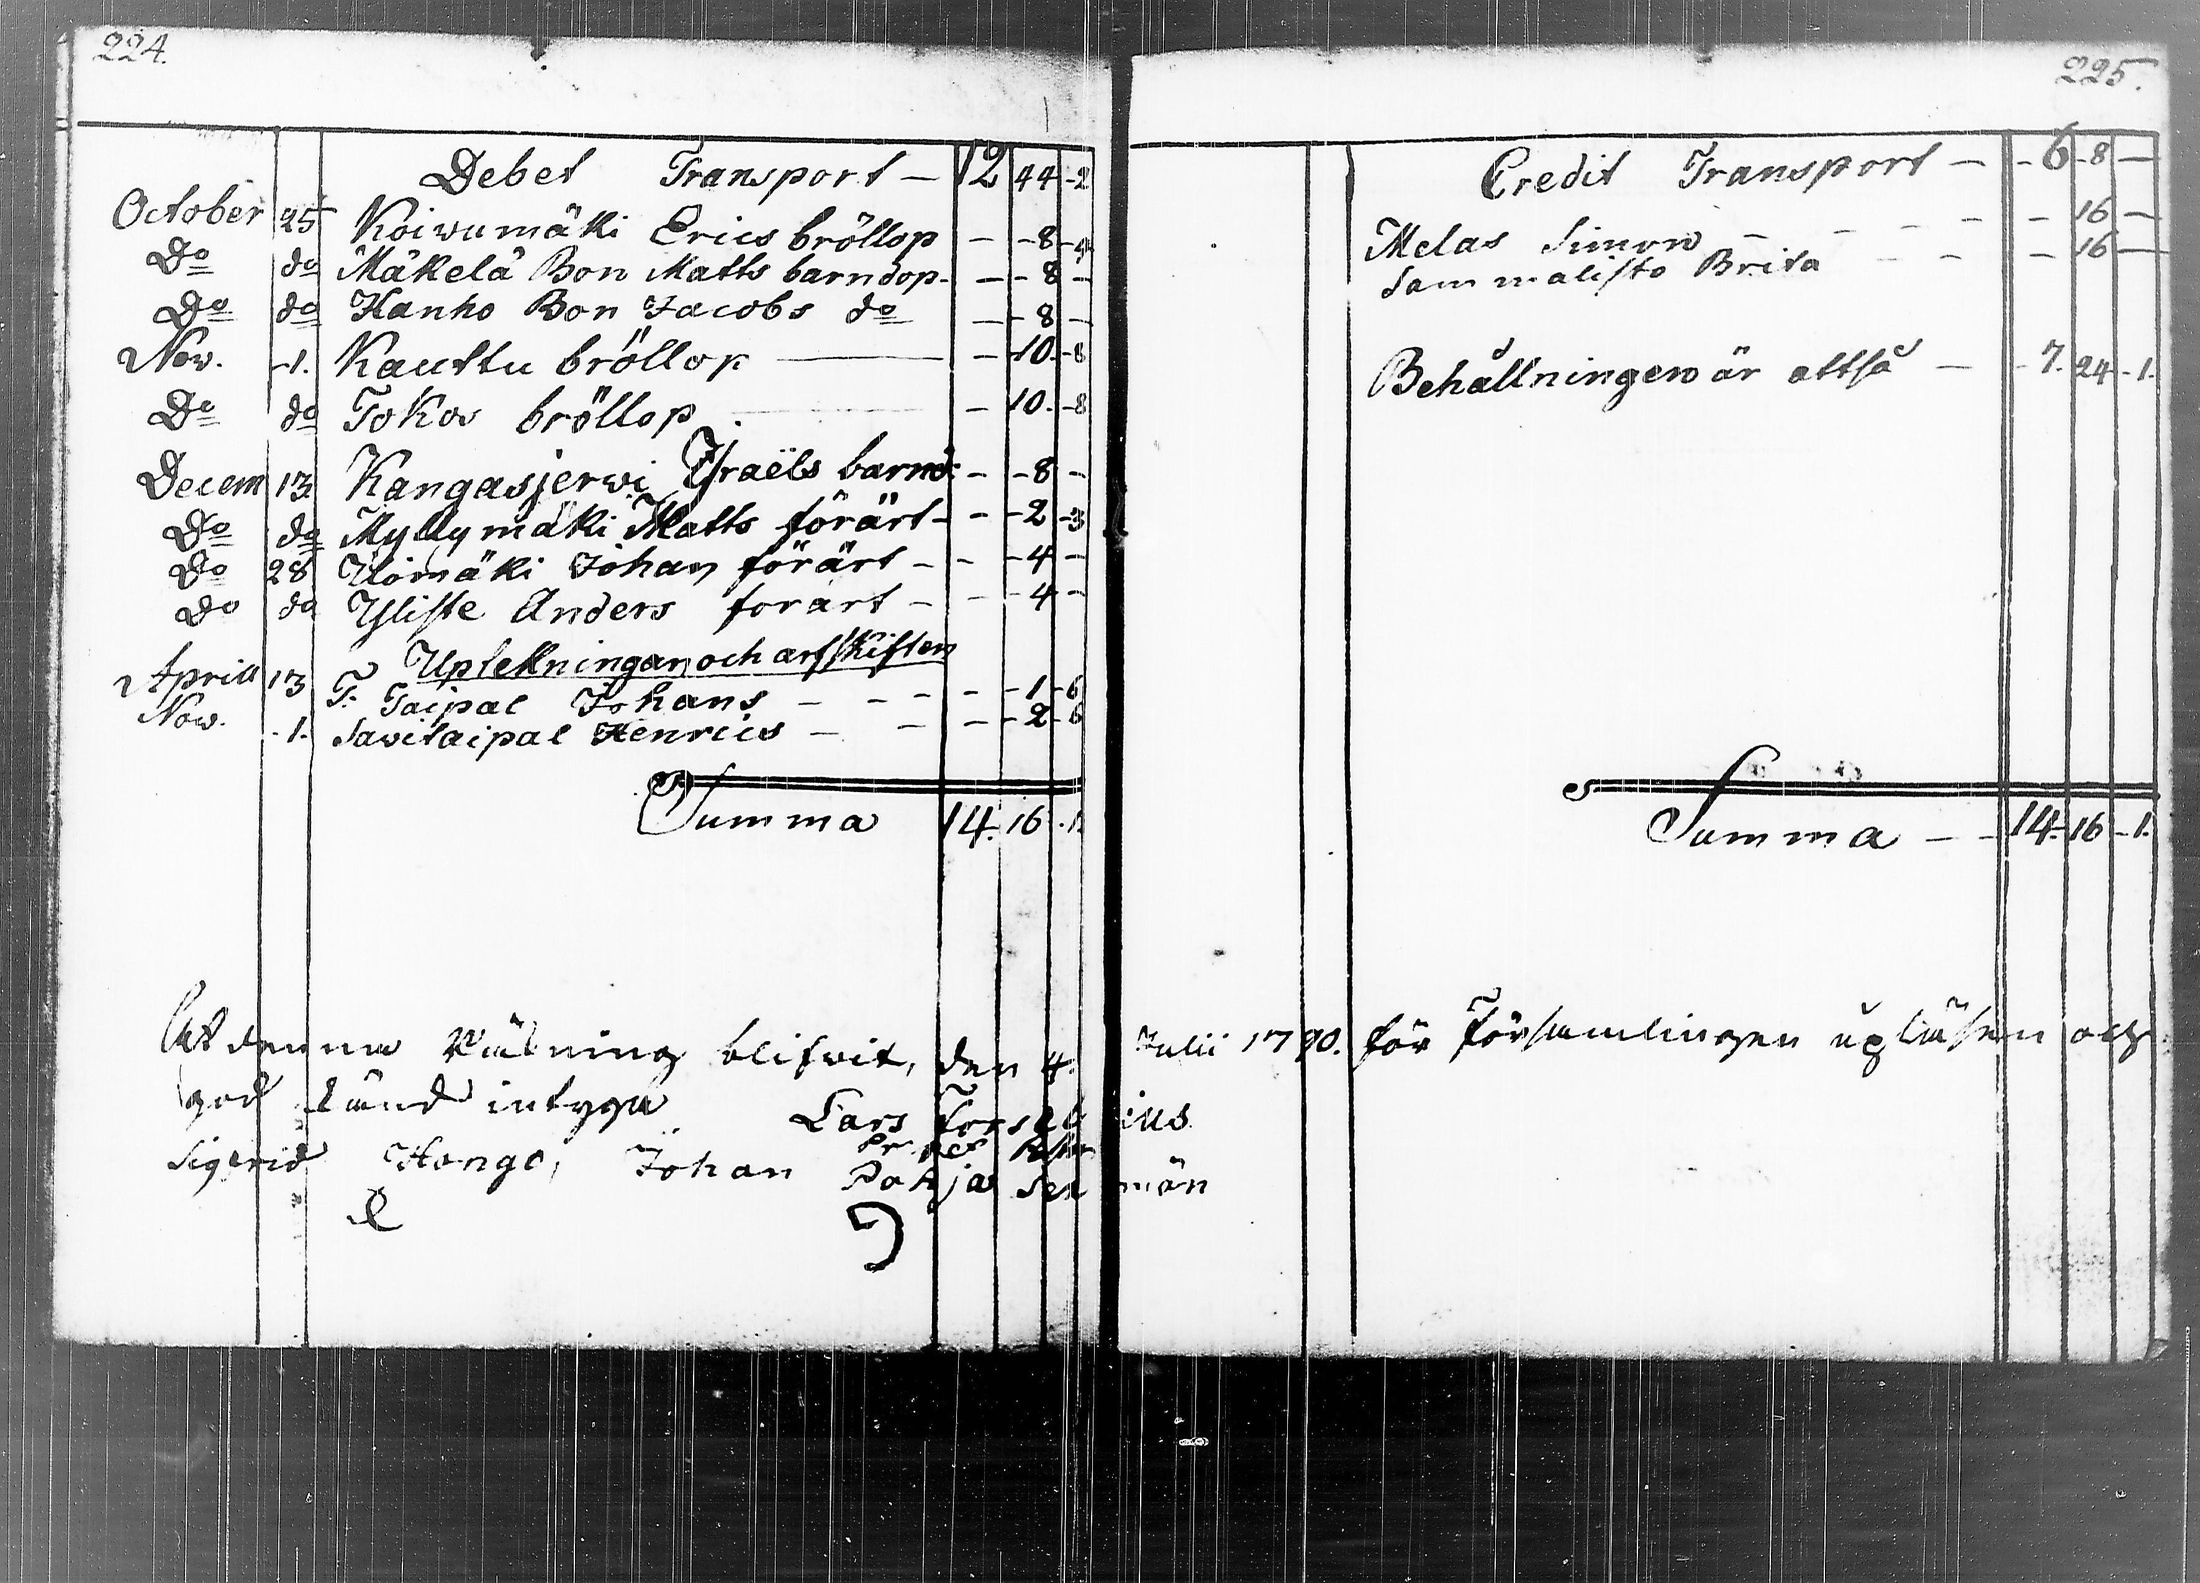 224.
Debet Transport — 12 44 -2
October 25 Koiwumäki Erics bröllop — -8 -4
Do do Mäkelä Bon Matts barndop. — -8 —
Do do Hanho Bon Jacobs do — -8 —
Nov. -1. Kauttu bröllop — -10. -8
Do do Tokos bröllop — 10. -8
Decem 13. Kangasjerwi Israëls barnd: - -8 -
Do do Myllymäki Matts förärt - - -2 -3
Do 28 Ulomäki Johan förärt - - -4 -
Do do Yliste Anders forart - - -4 -
Uptekningar och arfskiften
Aprill 13 T. Taipal Johans - - - -1 -6
Now. -1. Sawitaipal Henrics - - - -2 -6
Summa 14. 16 -1.
225.
Credit Transport — -6 -8 —
Melas Simon - - - - - 16 —
Sammalisto Brita - - - 16 —
Behållningen är altså — -7. 24 -1.
Summa - - 14. 16 -1.
At denna Räkning blifwit, den 4. Julii 1790. för Församlingen upläsen och
god känd intyga Lars Forselius
Sigfrid Hongo, Johan Pohja Sexmän